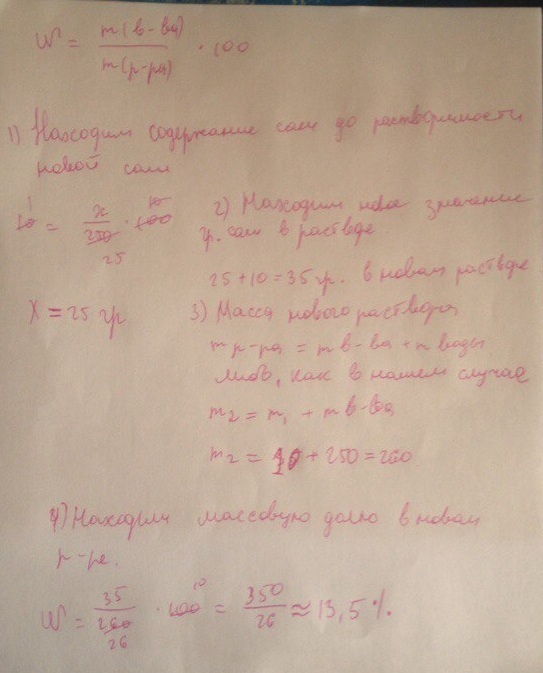 W = m(в-ва) / m(р-ра) · 100
1) Находим содержание соли до растворимости
новой соли
10 = x / 250 · 100
1
10
25
X = 25 гр
2) Находим новое значение
гр. соли в растворе
25 + 10 = 35 гр. в новом растворе
3) Масса нового раствора
m р-ра = m в-ва + m воды
либо, как в нашем случае
m₂ = m₁ + m в-ва
m₂ = 10 + 250 = 260
4) Находим массовую долю в новом
р-ре.
W = 35 / 260 · 100 = 350 / 26 ≈ 13,5 %.
10
26